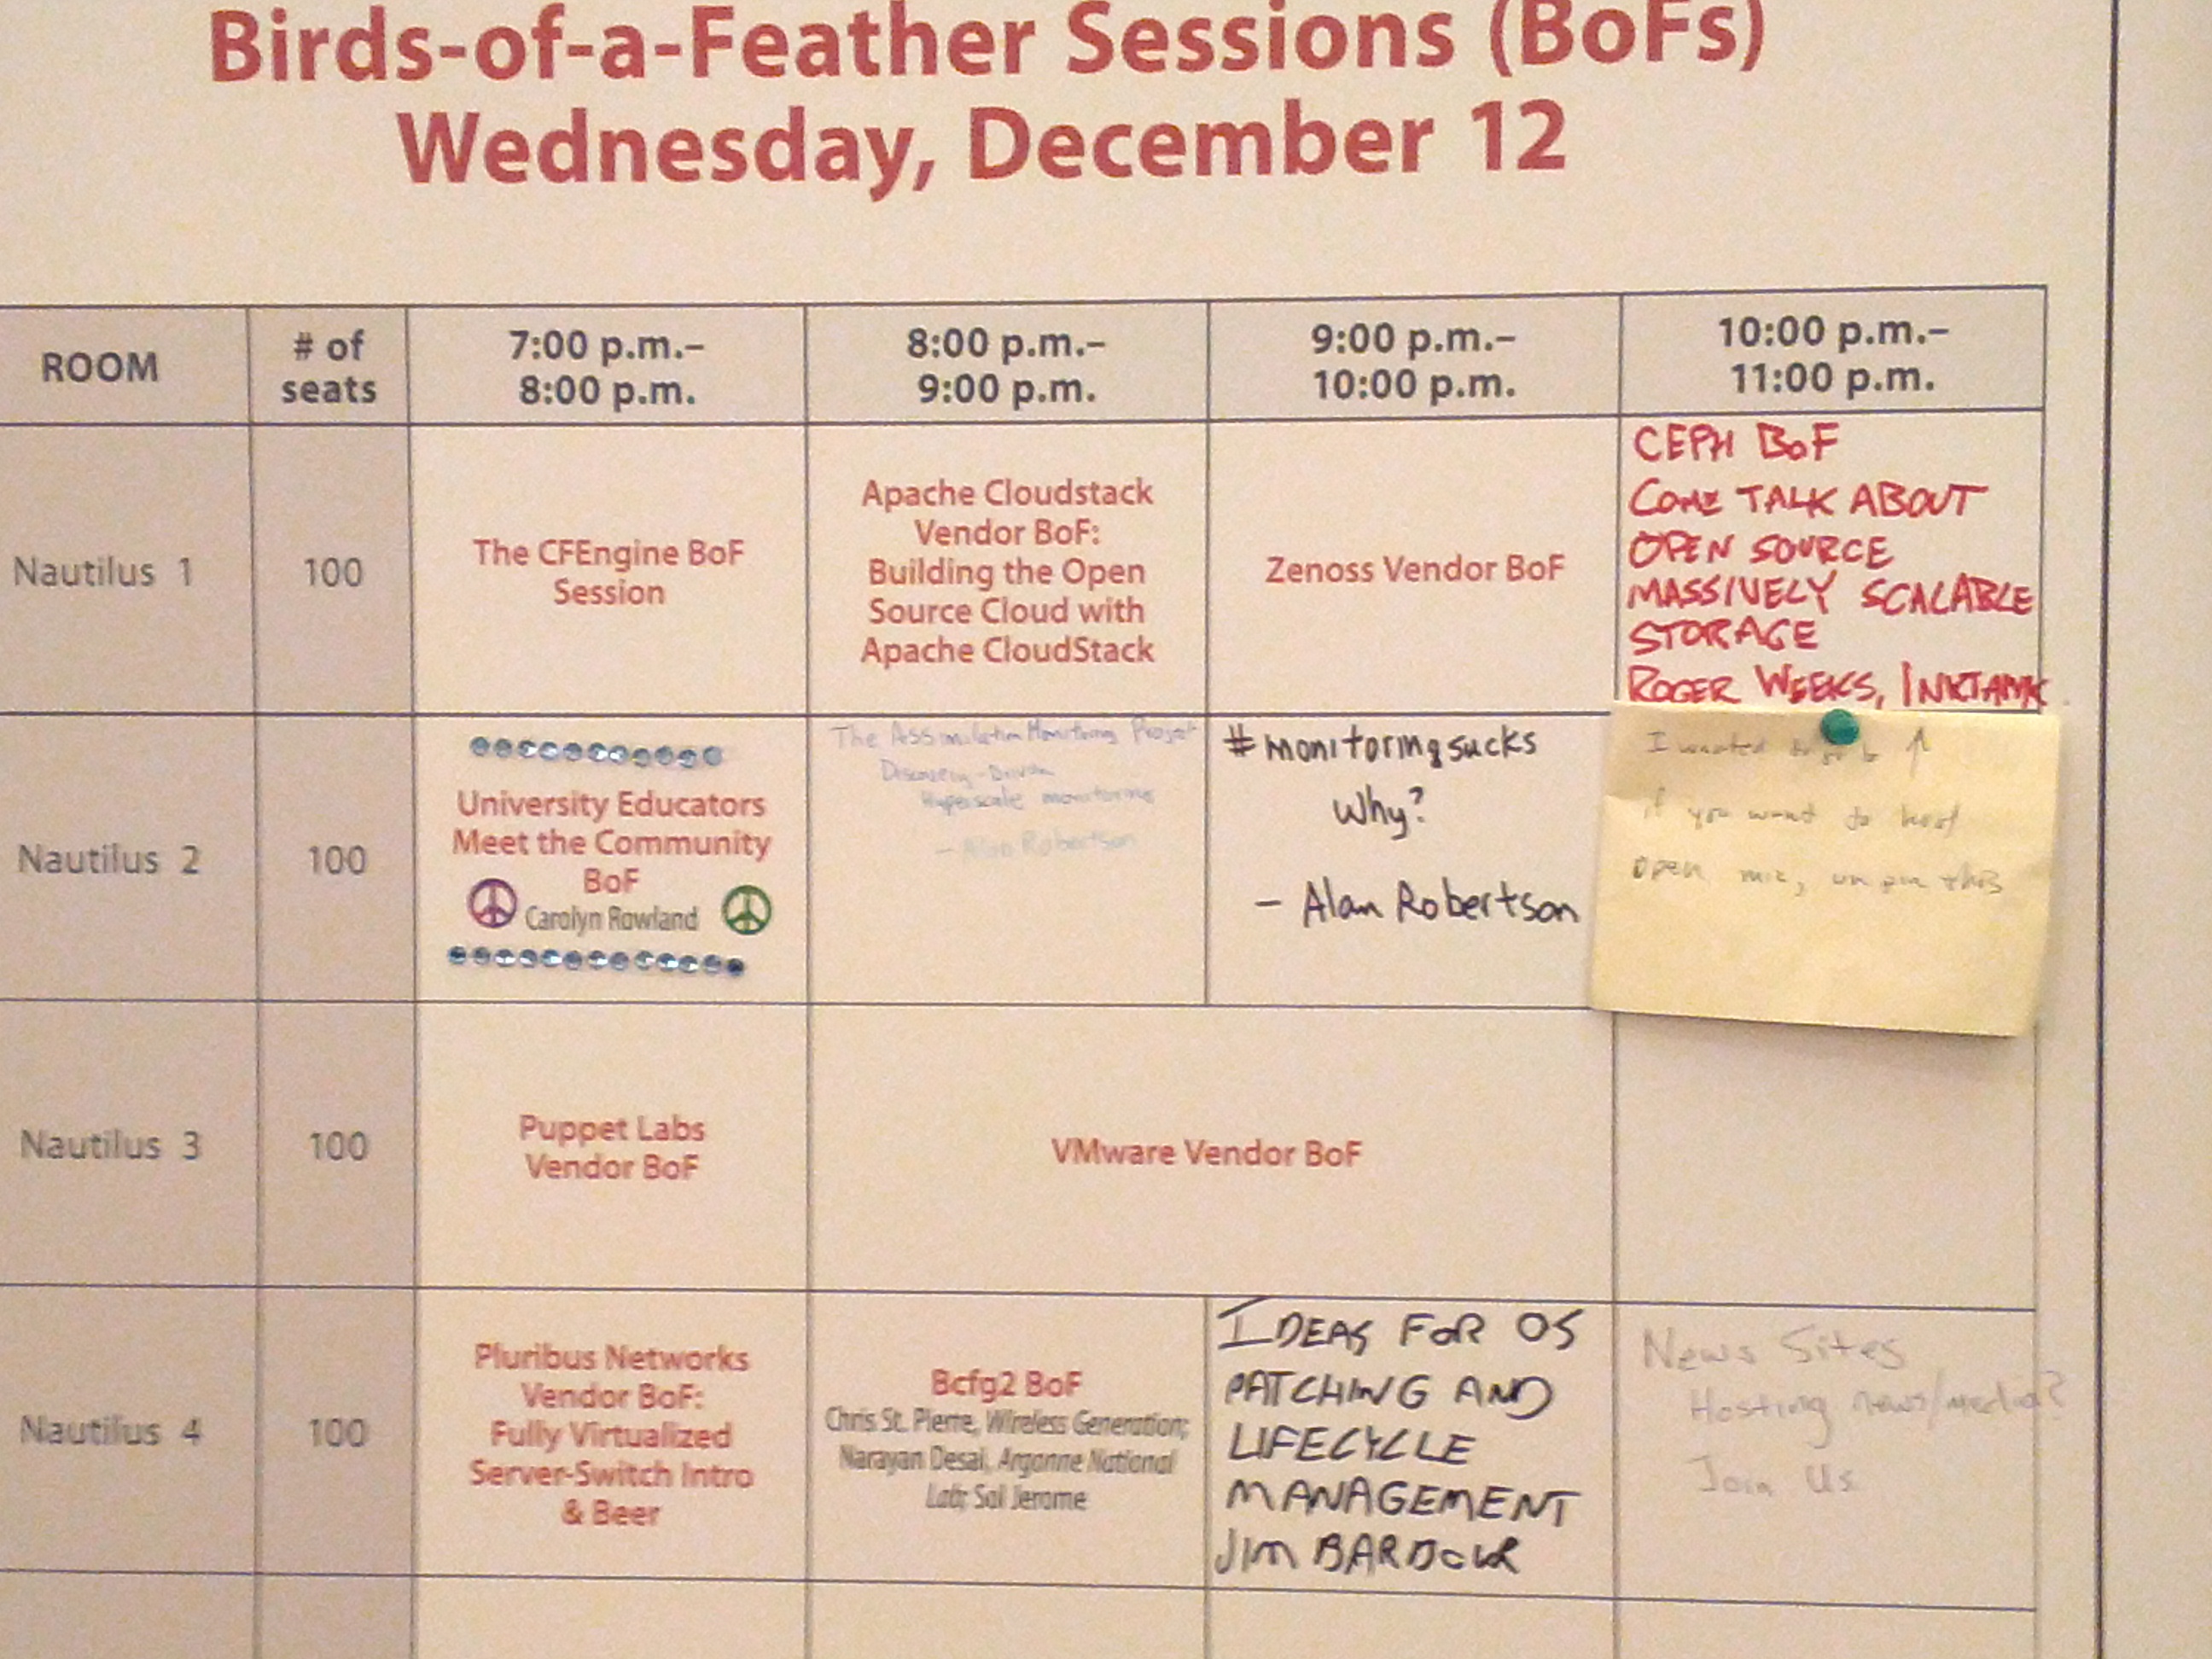 Birds-of-a-Feather Sessions (BoFs)
Wednesday, December 12
ROOM
# of
seats
7:00 p.m.–
8:00 p.m.
8:00 p.m.–
9:00 p.m.
9:00 p.m.–
10:00 p.m.
10:00 p.m.–
11:00 p.m.
Nautilus 1
100
The CFEngine BoF
Session
Apache Cloudstack
Vendor BoF:
Building the Open
Source Cloud with
Apache CloudStack
Zenoss Vendor BoF
CEPH BoF
COME TALK ABOUT
OPEN SOURCE
MASSIVELY SCALABLE
STORAGE
ROGER WEEKS, INKTANK
Nautilus 2
100
University Educators
Meet the Community
BoF
Carolyn Rowland
The Assimilation Monitoring Project
Discovery-Driven
Hyperscale monitoring
- Alan Robertson
#monitoringsucks
Why?
- Alan Robertson
I wanted to ↑
if you want to host
open mic, unpin this
Nautilus 3
100
Puppet Labs
Vendor BoF
VMware Vendor BoF
Nautilus 4
100
Pluribus Networks
Vendor BoF:
Fully Virtualized
Server-Switch Intro
& Beer
Bcfg2 BoF
Chris St. Pierre, Wireless Generation;
Narayan Desai, Argonne National
Lab; Sol Jerome
IDEAS FOR OS
PATCHING AND
LIFECYCLE
MANAGEMENT
JIM
News Sites
Hosting news/media?
Join Us